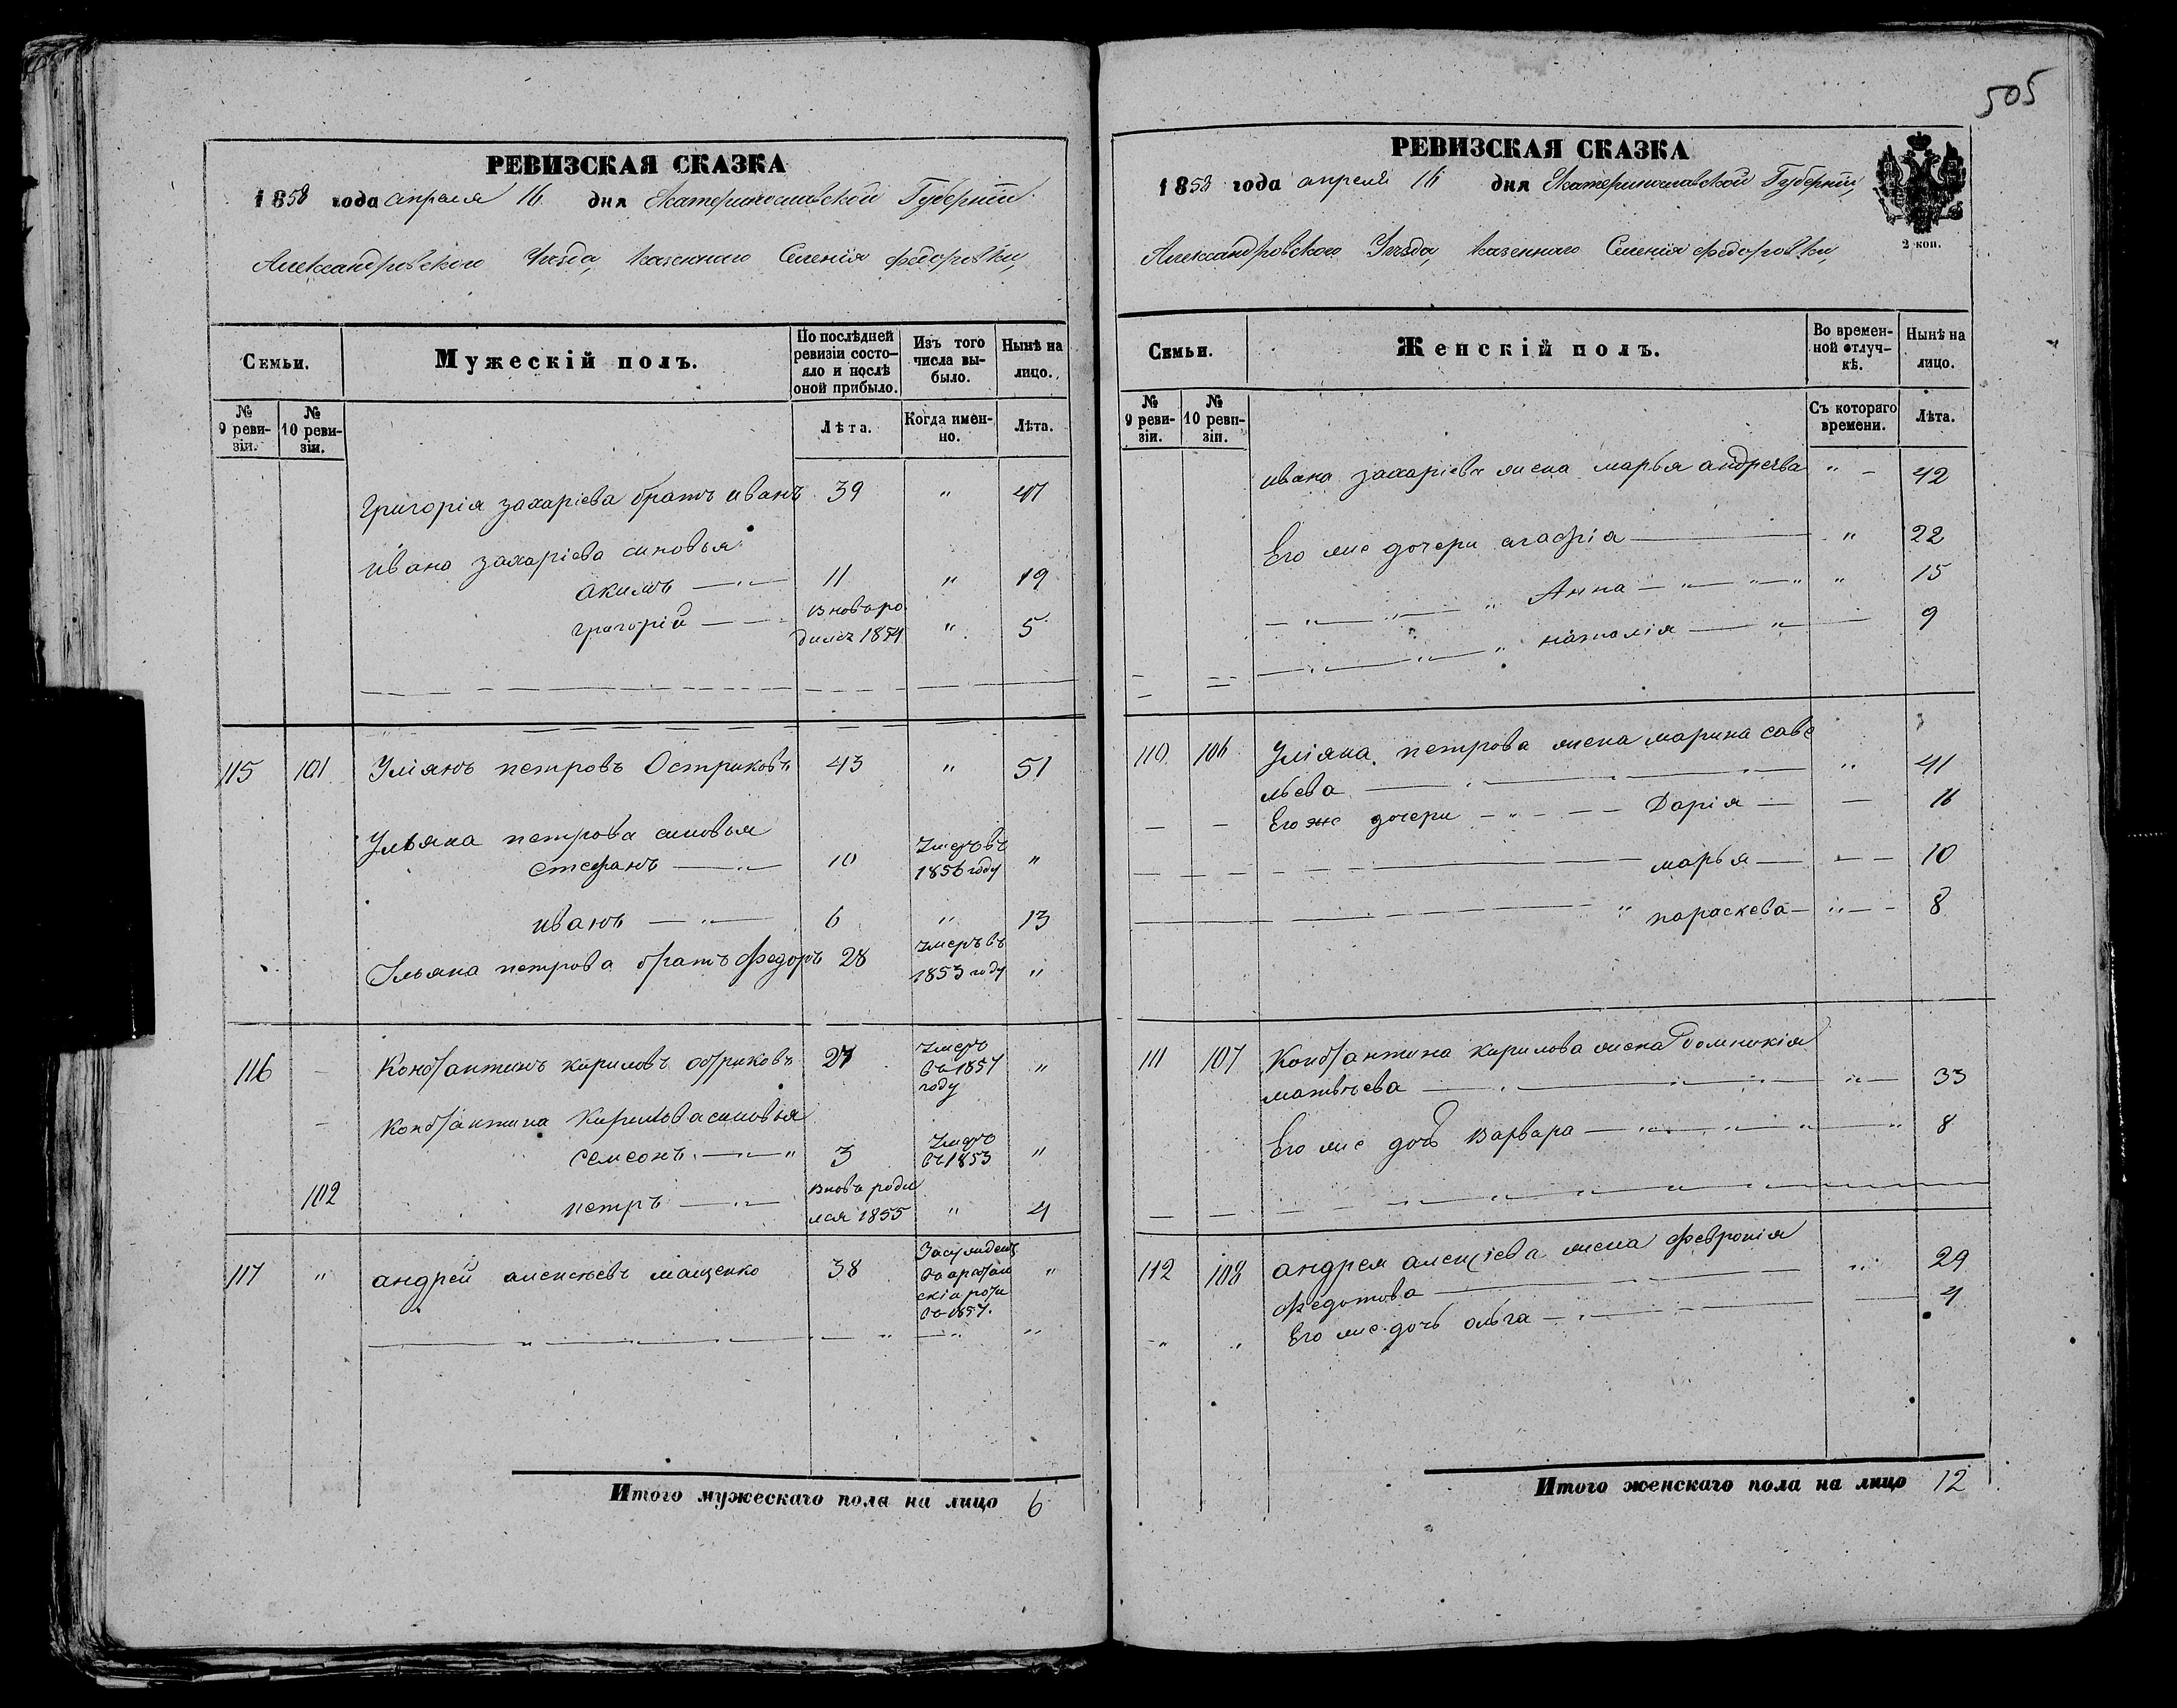 505
РЕВИЗСКАЯ СКАЗКА
1858 года апреля 16 дня Екатеринославской Губерніи
Александровского Уѣзда, казенного Селенія Федоровки,
Семьи.
Мужескій полъ.
По послѣдней ревизіи состояло и послѣ оной прибыло.
Изъ того числа выбыло.
Нынѣ на лицо.
№ 9 ревизіи.
№ 10 ревизіи.
Лѣта.
Когда именно.
Лѣта.
Григорія захаріева братъ иванъ 39 " 47
ивана захаріева синовья
акимъ 11 " 19
григорій Вновь родился 1854 " 5
115 101 Уліянъ петровъ Остриковъ 43 " 51
Ульяна петрова сыновья
стефанъ 10 Умеръ въ 1856 году "
иванъ 6 " 13
Ульяна петрова братъ Федоръ 28 Умеръ въ 1853 году "
116 Константинъ кириловъ остриковъ 27 Умеръ въ 1857 году "
Константина Кирилова сыновья
семсонъ 3 Умеръ въ 1853 "
102 петръ Вновь родился 1855 " 4
117 " андрей алексеевъ мащенко 38 въ 1857. "
Итого мужескаго пола на лицо 6
РЕВИЗСКАЯ СКАЗКА
1858 года апреля 16 дня Екатеринославской Губерніи,
Александровского Уѣзда, казенного Селенія Федоровки,
2 коп.
Семьи.
Женскій полъ.
Во временной отлучкѣ.
Нынѣ на лицо.
№ 9 ревизіи.
№ 10 ревизіи.
Съ котораго времени.
Лѣта.
ивана захаріева жена марья андреева " 42
Его же дочери агафія " 22
Анна " 15
наталія 9
110 106 Уліяна петрова жена марина саве
льева " 41
Его же дочери Дарія 16
марья 10
параскева " 8
111 107 Константина кирилова жена Домникія
матвѣева " 33
Его же дочь Варвара " 8
112 108 андрея алексіева жена Февронія
Федотова " 29
" " Его же дочь ольга 4
Итого женскаго пола на лицо 12